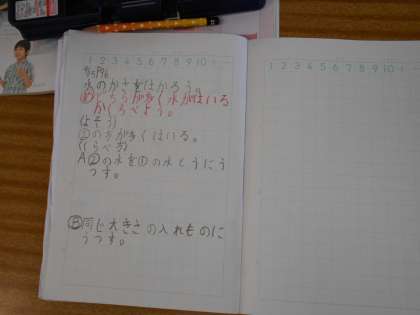 1 2 3 4 5 6 7 8 9 10
水のかさをはかろう。
め どちらが多く水がはいる
かくらべよう。
(よそう)
②の方が多くはいる。
(くらべ方)
A ②の水を①の水とうにう
つす。
B 同じ大きさの入れものに
うつす。
1 2 3 4 5 6 7 8 9 10